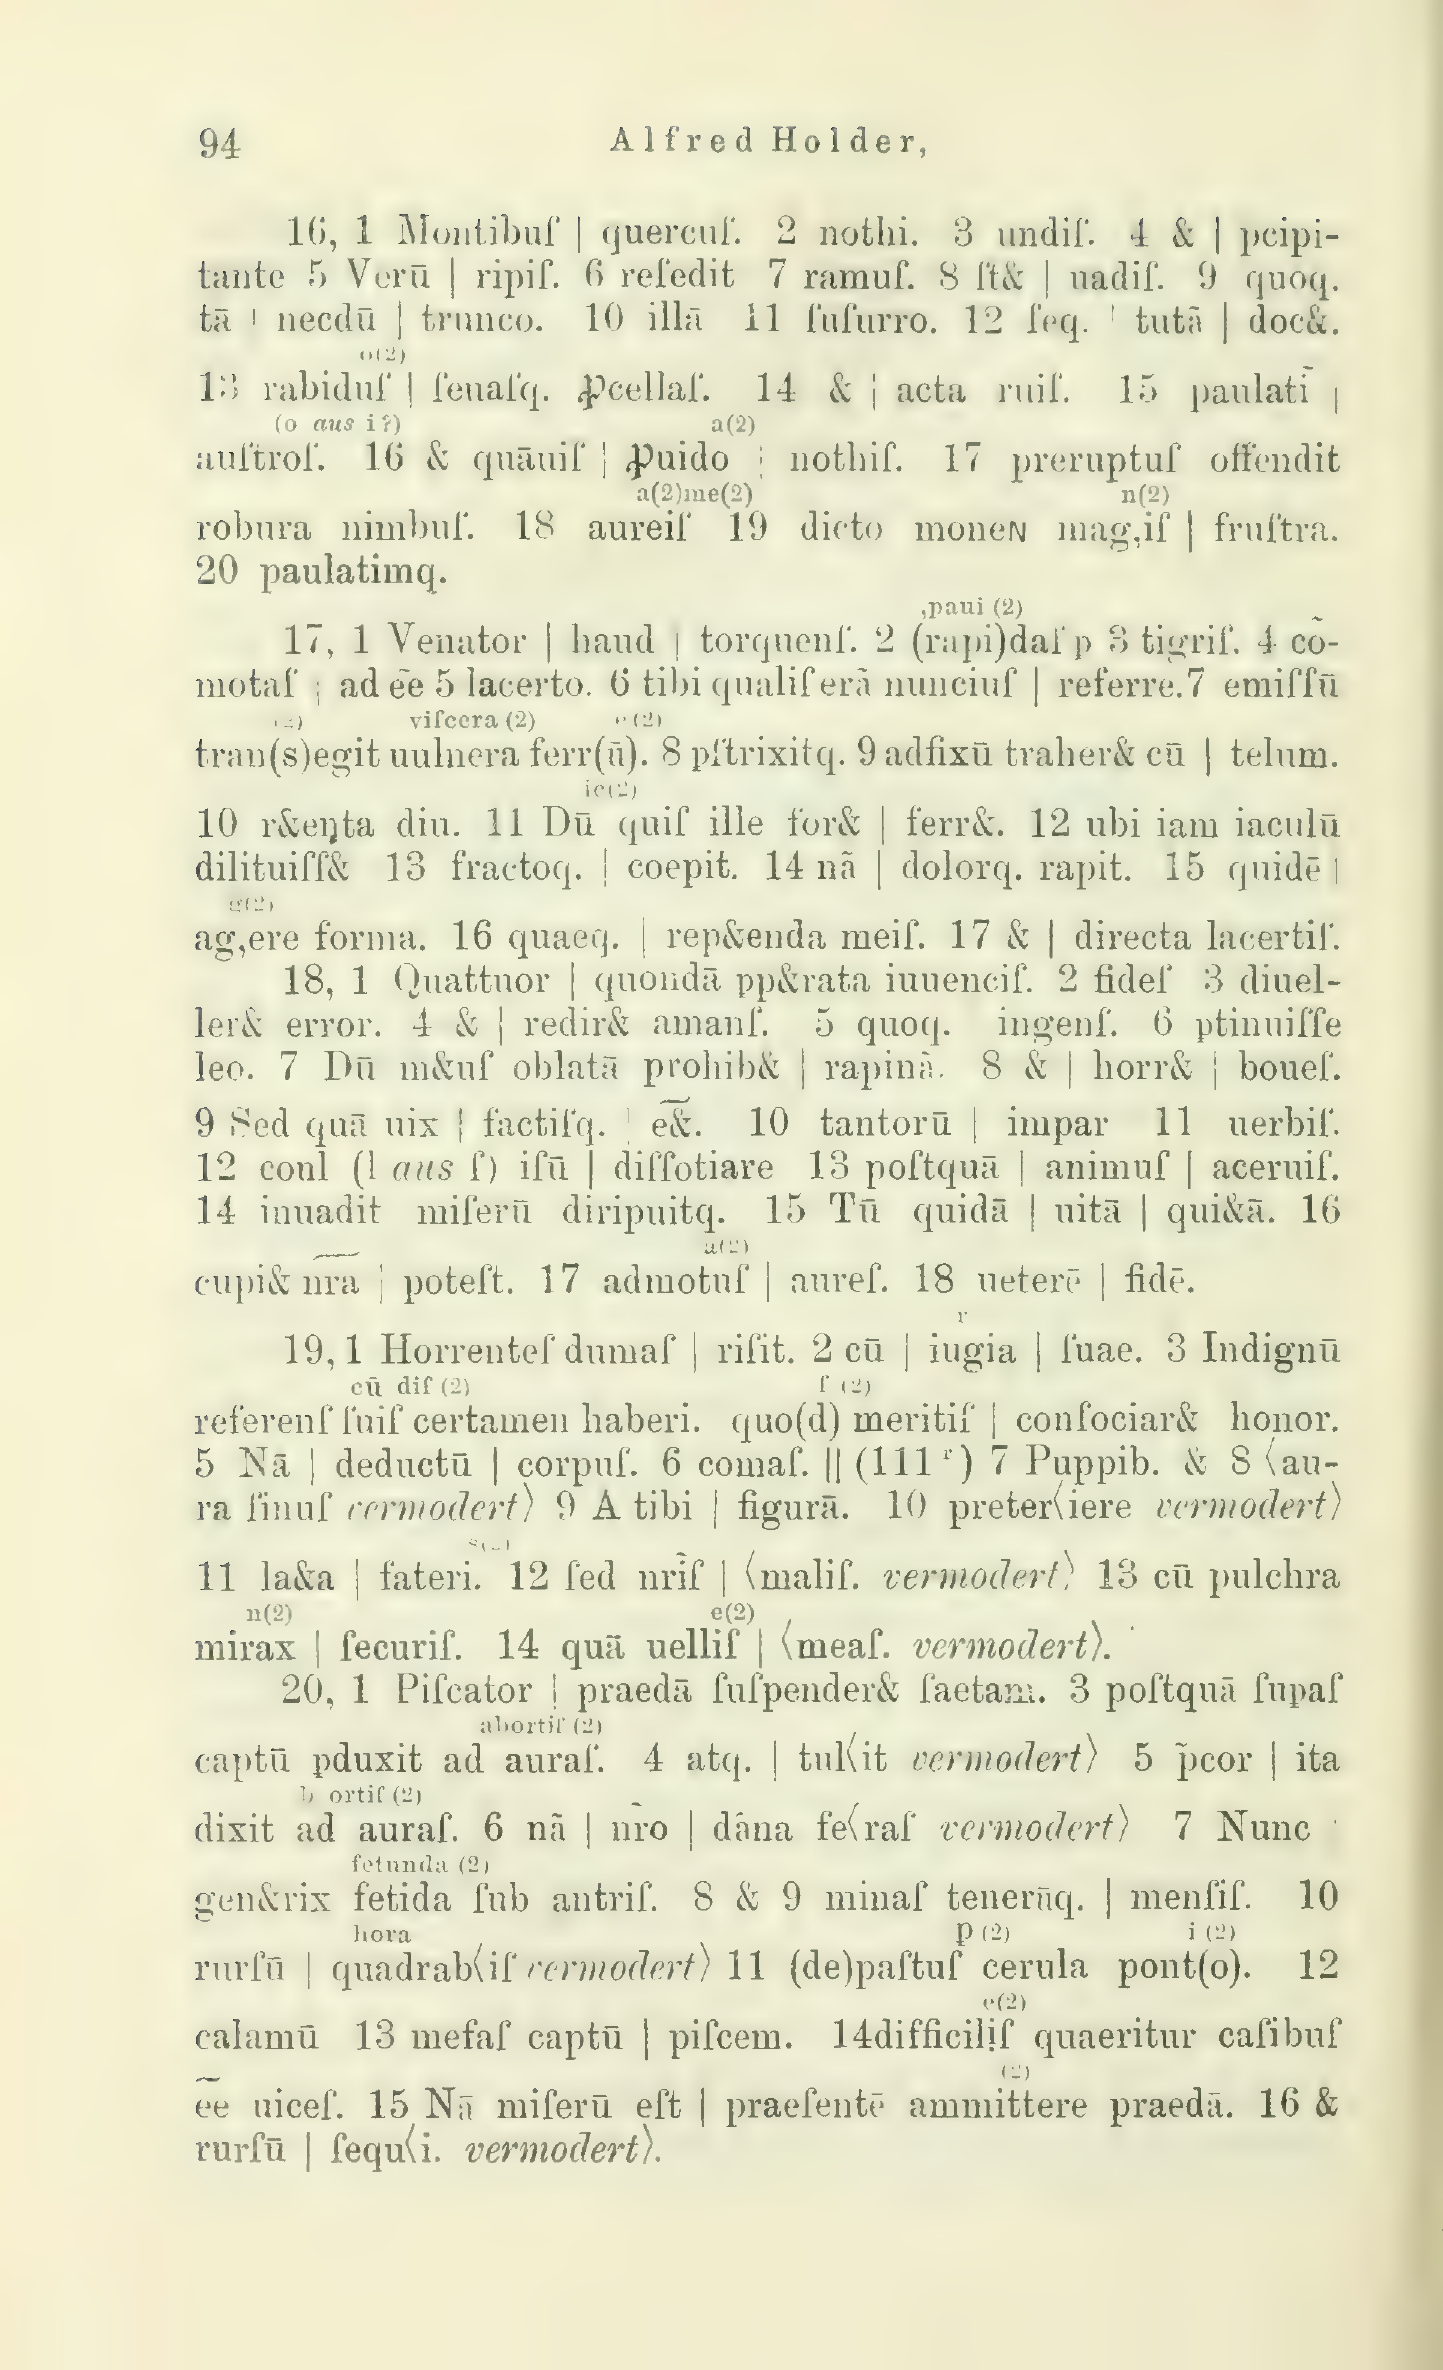 94 Alfred Holder,
16, 1 Montibuſ | quercuſ. 2 nothi. 3 undiſ. 4 & | pcipi-
tante 5 Verū | ripiſ. 6 reſedit 7 ramuſ. 8 ſt& | uadiſ. 9 quoq.
tā | necdū | trunco. 10 illā 11 ſuſurro. 12 ſeq. | tutā | doc&.
o(2)
13 rabiduſ | ſeuaſq. ꝓcellaſ. 14 & | acta ruiſ. 15 paulatī |
(o aus i?) a(2)
auſtroſ. 16 & quāuiſ | ꝓuido | nothiſ. 17 preruptuſ offendit
a(2)me(2) n(2)
robura nimbuſ. 18 aureiſ 19 dicto moneɴ mag,iſ | fruſtra.
20 paulatimq.
,paui (2)
17, 1 Venator | haud | torquenſ. 2 (rapi)daſ p 3 tigriſ. 4 cō-
motaſ | ad ēe 5 lacerto. 6 tibi qualiſ erā nunciuſ | referre. 7 emiſſū
(2) viſcera (2) e(2)
tran(s)egit uulnera ferr(ū). 8 pſtrixitq. 9 adfixū traher& cū | telum.
ic(2)
10 r&eņta diu. 11 Dū quiſ ille for& | ferr&. 12 ubi iam iaculū
dilituiſſ& 13 fractoq. | coepit. 14 nā | dolorq. rapit. 15 quidē |
g(2)
ag,ere forma. 16 quaeq. | rep&enda meiſ. 17 & | directa lacertiſ.
18, 1 Quattuor | quondā pp&rata iuuenciſ. 2 fideſ 3 diuel-
ler& error. 4 & | redir& amanſ. 5 quoq. ingenſ. 6 ptinuiſſe
leo. 7 Dū m&uſ oblatā prohib& | rapinā. 8 & | horr& | boueſ.
9 Sed quā uix | factiſq. | e&. 10 tantorū | impar 11 uerbiſ.
12 conl (l aus ſ) iſū | diſſotiare 13 poſtquā | animuſ | aceruiſ.
14 inuadit miſerū diripuitq. 15 Tū quidā | uitā | qui&ā. 16
a(2)
cupi& n̄ra | poteſt. 17 admotuſ | aureſ. 18 ueterē | fidē.
r
19, 1 Horrenteſ dumaſ | riſit. 2 cū | iugia | ſuae. 3 Indignū
cū diſ (2) ſ (2)
referenſ ſuiſ certamen haberi. quo(d) meritiſ | conſociar& honor.
5 Nā | deductū | corpuſ. 6 comaſ. || (111 r) 7 Puppib. & 8 ⟨au-
ra ſinuſ vermodert⟩ 9 A tibi | figurā. 10 preter⟨iere vermodert⟩
11 la&a | fateri. 12 ſed nr̄iſ | ⟨maliſ. vermodert⟩ 13 cū pulchra
n(2) e(2)
mirax | ſecuriſ. 14 quā uelliſ | ⟨meaſ. vermodert⟩.
20, 1 Piſcator | praedā ſuſpender& ſaetam. 3 poſtquā ſupaſ
abortiſ (2)
captū pduxit ad auraſ. 4 atq. | tul⟨it vermodert⟩ 5 p̄cor | ita
b ortiſ (2)
dixit ad auraſ. 6 nā | nr̄o | dāna fe⟨raſ vermodert⟩ 7 Nunc
fetunda (2)
gen&rix fetida ſub antriſ. 8 & 9 minaſ tenerūq. | menſiſ. 10
hora p (2) i (2)
rurſū | quadrab⟨iſ vermodert⟩ 11 (de)paſtuſ cerula pont(o). 12
e(2)
calamū 13 mefaſ captū | piſcem. 14 difficilịſ quaeritur caſibuſ
(2)
ēe uiceſ. 15 Nā miſerū eſt | praeſentē ammittere praedā. 16 &
rurſū | ſequ⟨i. vermodert⟩.